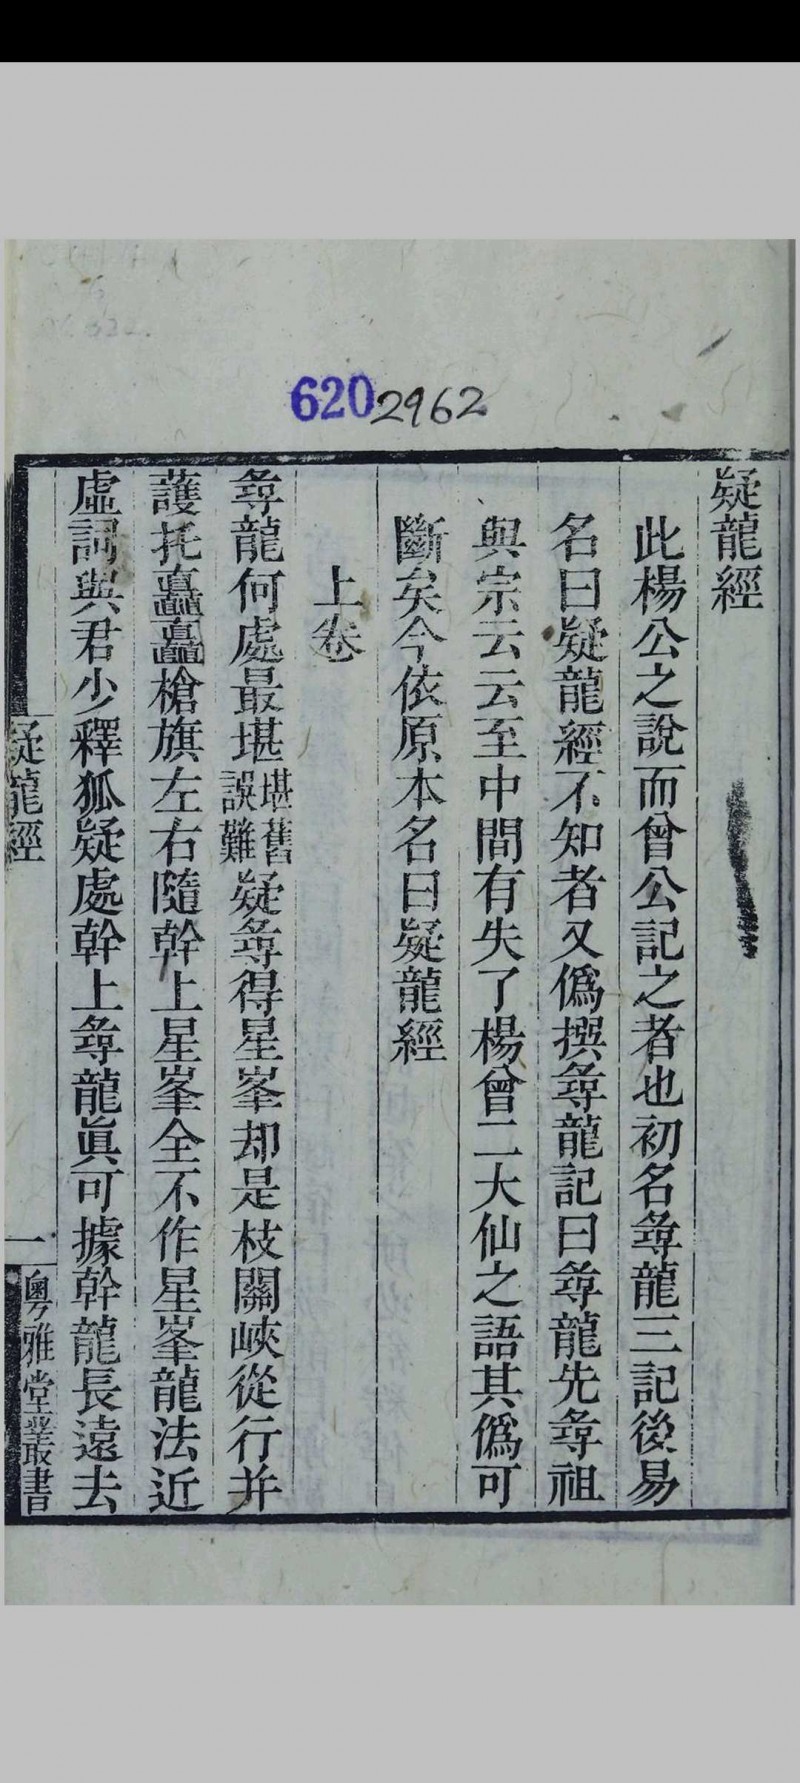 6202962
疑龍經
此楊公之說而曾公記之者也初名尋龍三記後易
名曰疑龍經不知者又僞撰尋龍記曰尋龍先尋祖
與宗云云至中間有失了楊曾二大仙之語其僞可
斷矣今依原本名曰疑龍經
上卷
尋龍何處最堪堪舊誤難疑尋得星峯却是枝關峽從行并
護托矗矗槍旗左右隨幹上星峯全不作星峯龍法近
虛詞與君少釋狐疑處幹上尋龍眞可據幹龍長遠去
疑龍經
一
粵雅堂叢書